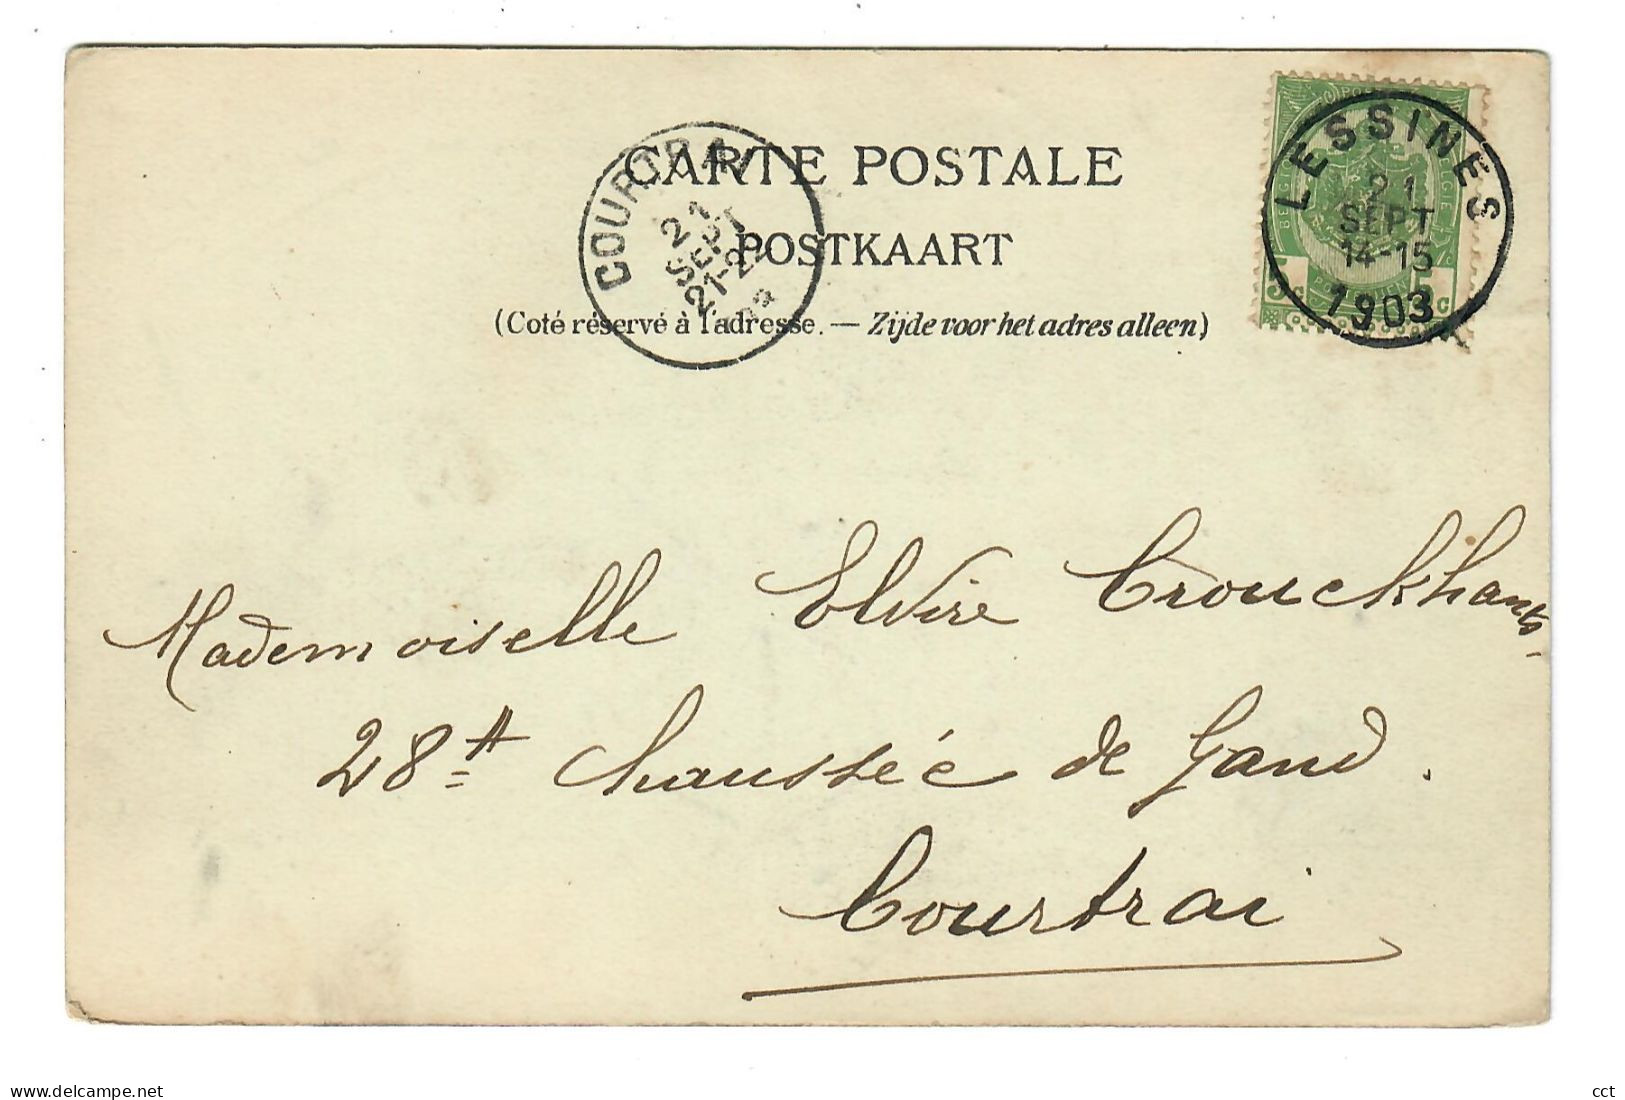 CARTE POSTALE
POSTKAART
(Coté réservé à l'adresse. — Zijde voor het adres alleen)
COURTRAI
21
SEPT
21-22
LESSINES
21
SEPT
14-15
1903
Mademoiselle Elvire Crouckhants
28A Chaussée de Gand.
Courtrai
delcampe.net
cct